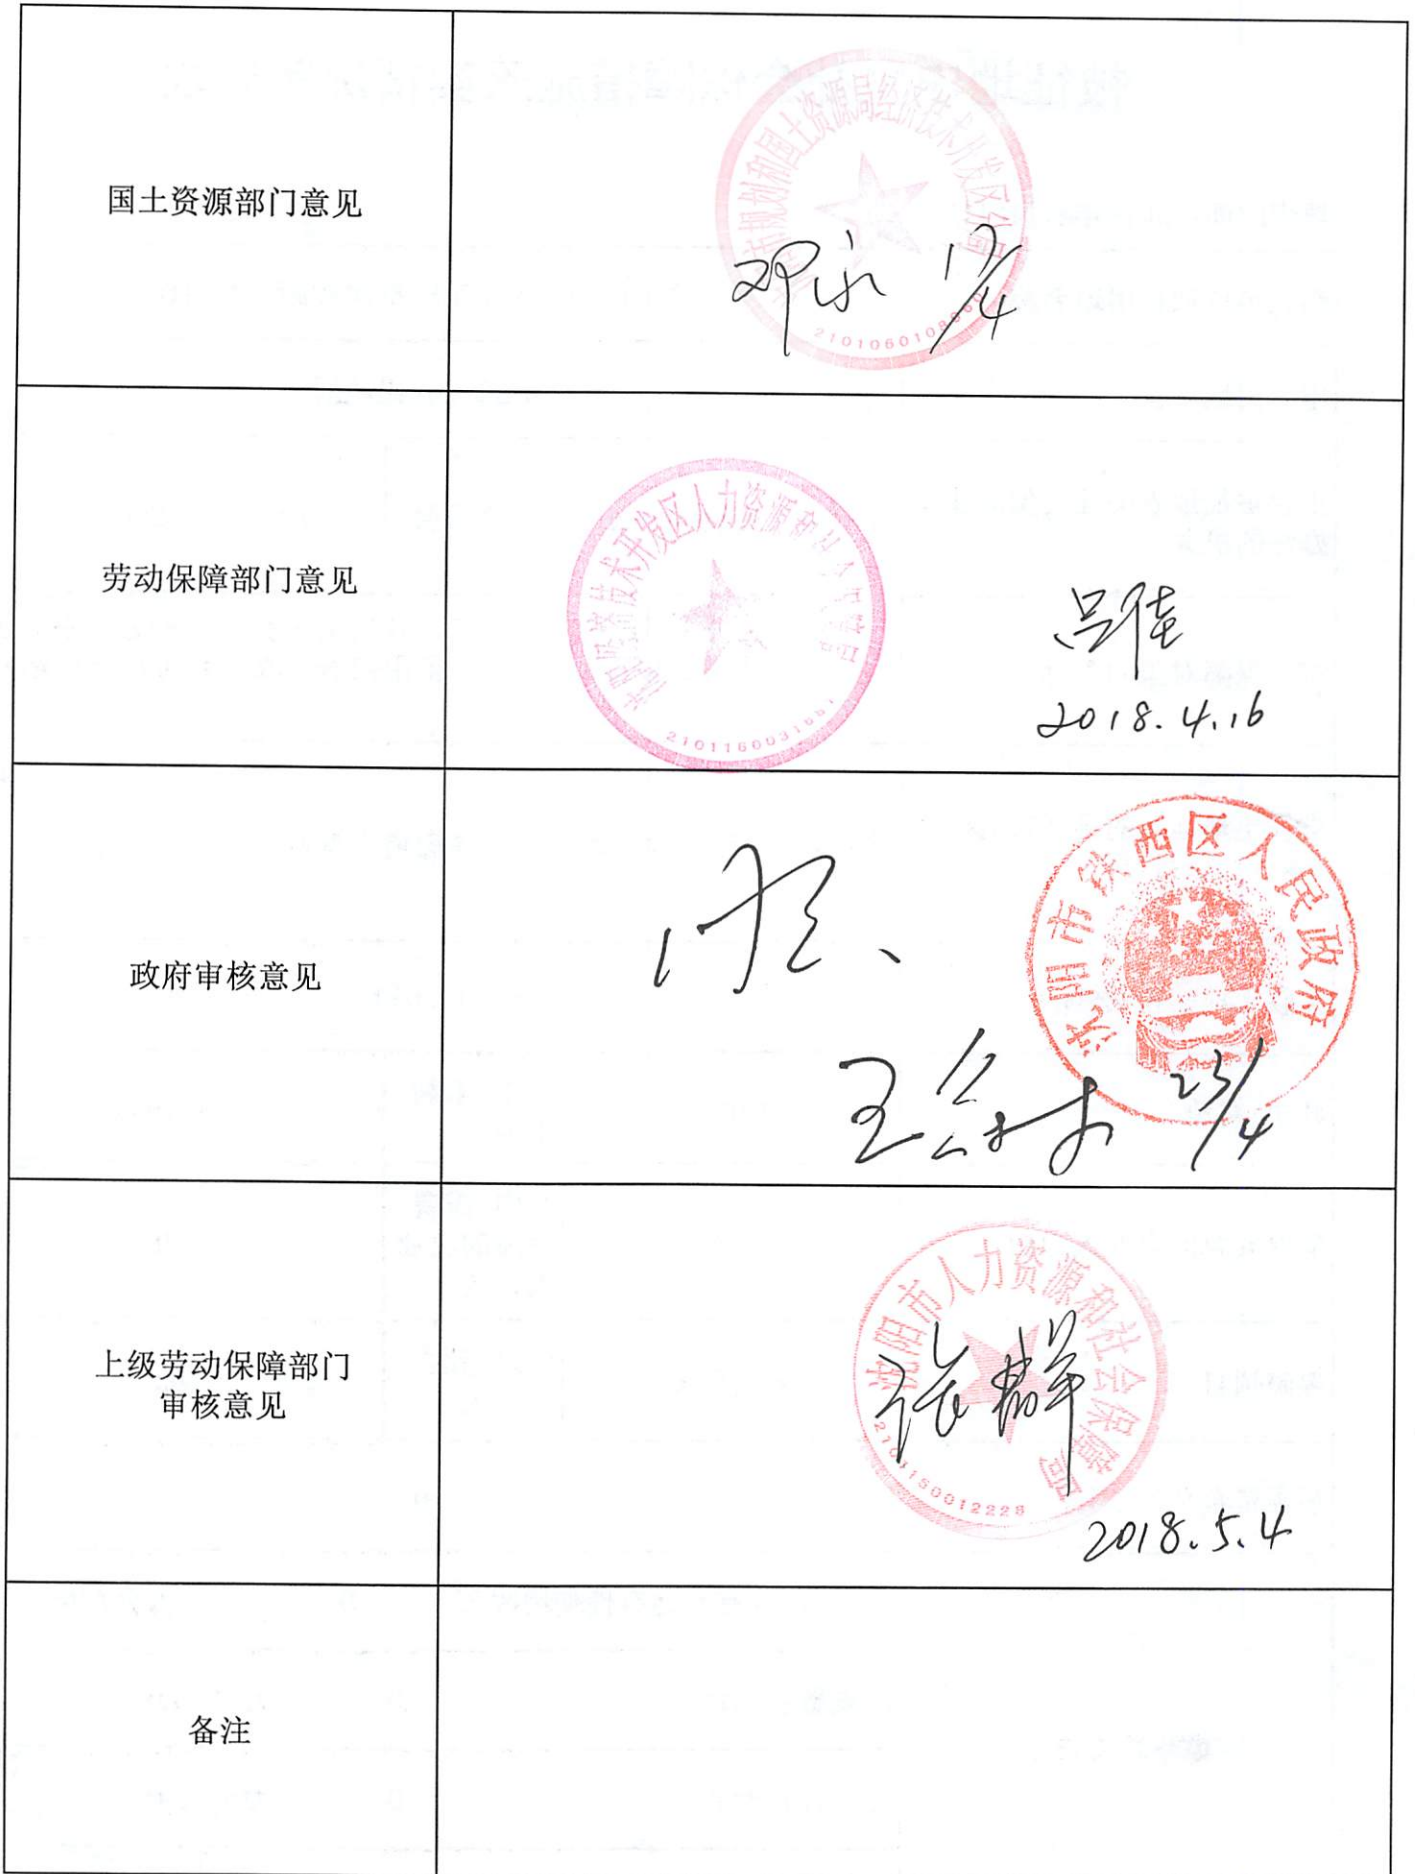 国土资源部门意见
规划和国土资源局经济技术开发区分局
邓永 17/4
劳动保障部门意见
沈阳经济技术开发区人力资源和社会保障局
吕佳
2018.4.16
政府审核意见
沈阳市铁西区人民政府
23/4
上级劳动保障部门
审核意见
沈阳市人力资源和社会保障局
2101150012228
2018.5.4
备注